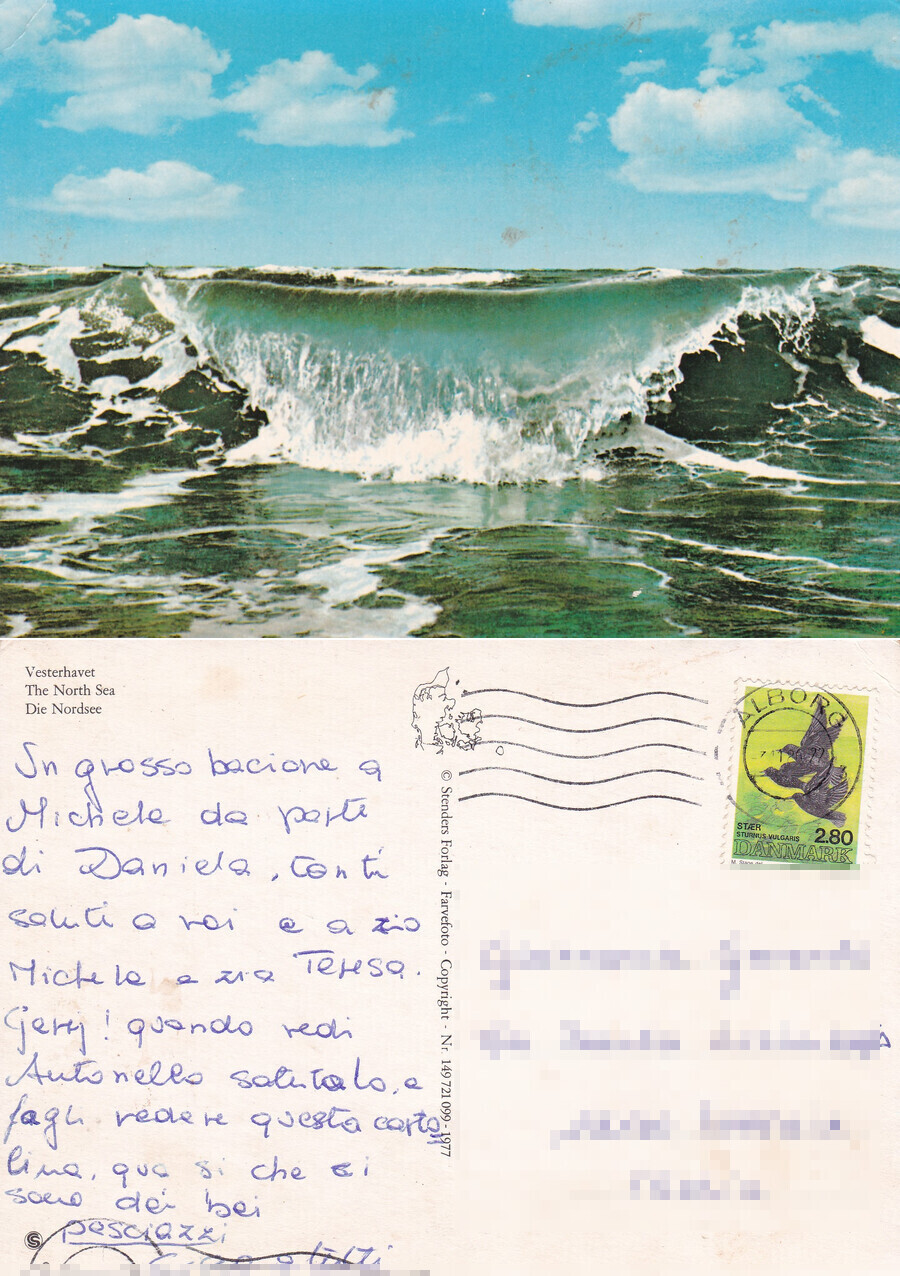 Vesterhavet
The North Sea
Die Nordsee
Un grosso bacione a
Michele da parte
di Daniela, tanti
saluti a voi e a zio
Michele e zia Teresa.
Gerry! quando vedi
Antonello salutalo, e
fagli vedere questa carto
lina, qua si che ci
sono dei bei
pesciazzi
© Stenders Forlag - Farvefoto - Copyright - Nr. 149 721 099 - 1977
ALBORG
STÆR
STURNUS VULGARIS
2.80
DANMARK
S